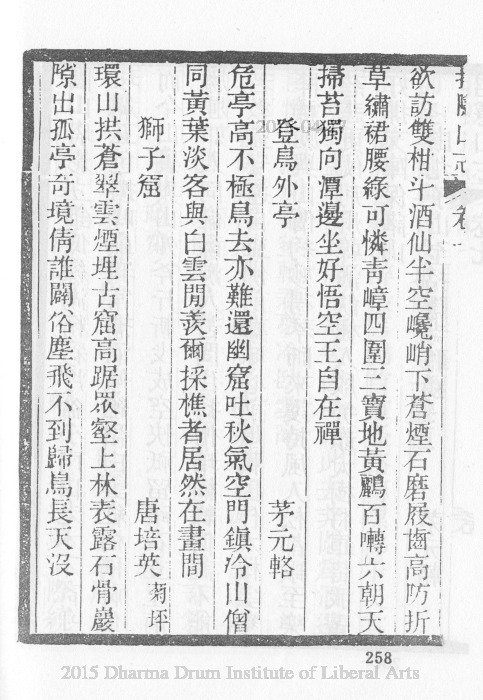 欲訪雙柑斗酒仙半空巉峭下蒼煙石磨屐齒高防折
草繡裙腰綠可憐靑嶂四圍三寶地黃鸝百囀六朝天
掃苔獨向潭邊坐好悟空王自在禪
登鳥外亭 茅元輅
危亭高不極鳥去亦難還幽窟吐秋氣空門鎮冷山僧
同黃葉淡客與白雲閒羨爾採樵者居然在畫間
獅子窟 唐培英 菊坪
環山拱蒼翠雲煙埋古窟高踞眾壑上林表露石骨巖
隙出孤亭奇境倩誰闢俗塵飛不到歸鳥長天沒
258
2015 Dharma Drum Institute of Liberal Arts